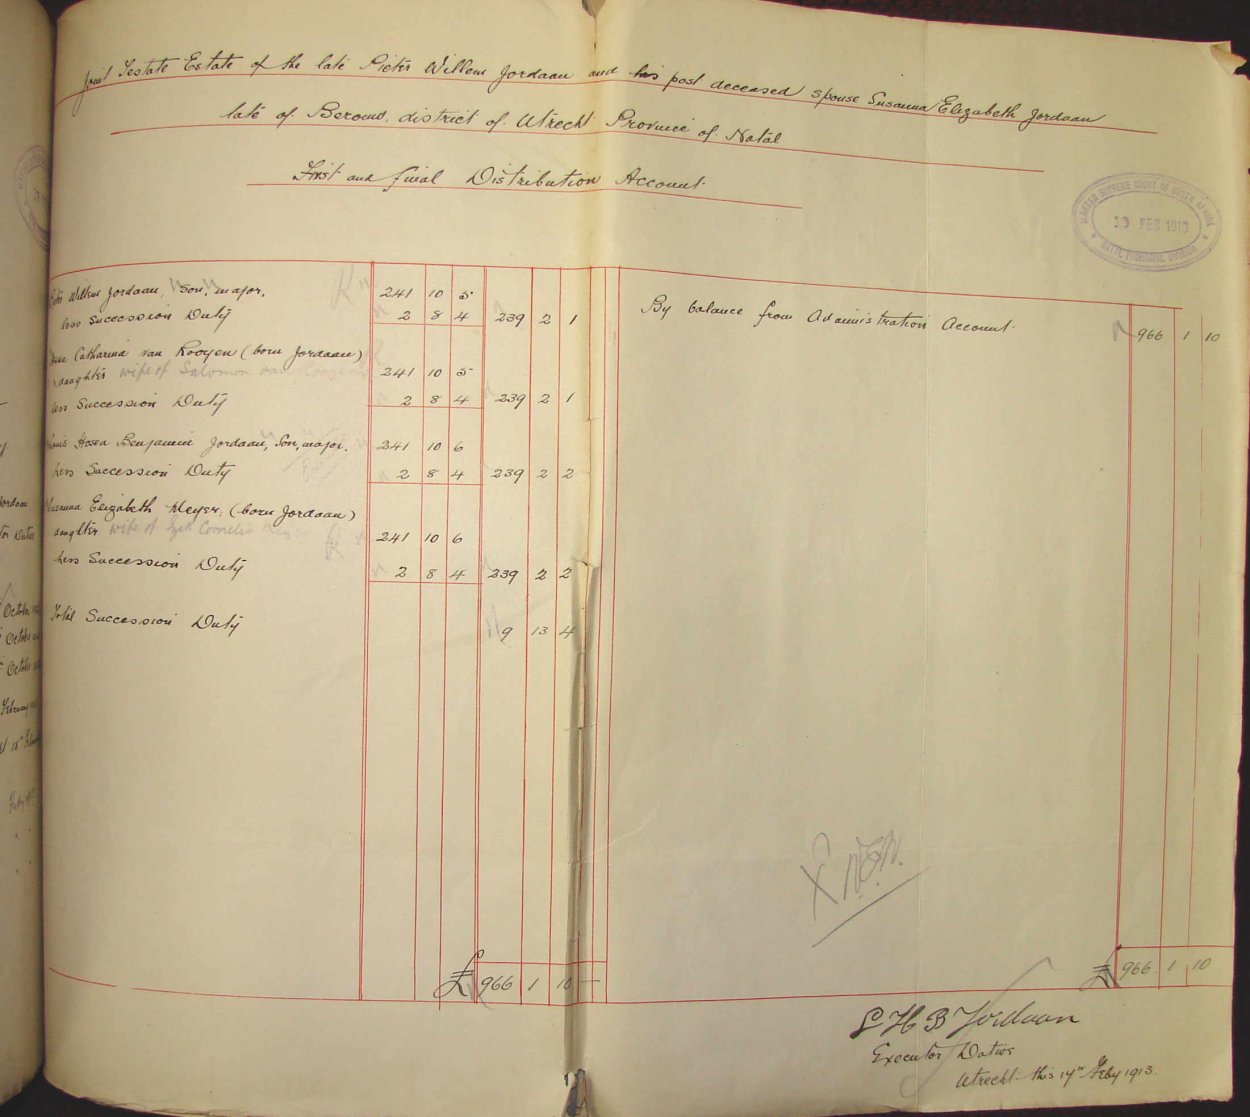 Joint Testate Estate of the late Pieter Willem Jordaan and his post deceased spouse Susanna Elizabeth Jordaan
late of district of Utrecht Province of Natal
First and final Distribution Account.
MASTER SUPREME COURT OF SOUTH AFRICA
FEB 1913
NATAL PROVINCIAL DIVISION
Pieter Willem Jordaan, Son, major. 241 10 5
less Succession Duty 2 8 4 239 2 1
By balance from Administration Account. 966 1 10
Catharina van Rooyen (born Jordaan)
daughter wife of Salomon van 241 10 5
less Succession Duty 2 8 4 239 2 1
Hosea Benjamin Jordaan, Son, major. 241 10 6
Less Succession Duty 2 8 4 239 2 2
Susanna Elizabeth Meyer, (born Jordaan)
daughter wife of Cornelis 241 10 6
Less Succession Duty 2 8 4 239 2 2
Total Succession Duty 9 13 4
£ 966 1 10 £ 966 1 10
L H B Jordaan
Executor Dative
Utrecht this 14th Feby 1913.
October
October
October
February